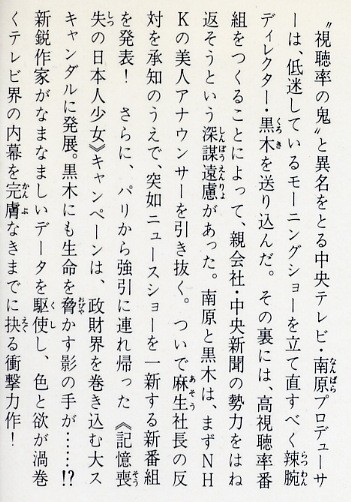 〝視聴率の鬼〟と異名をとる中央テレビ・南原プロデューサ
ーは、低迷しているモーニングショーを立て直すべく辣腕
ディレクター・黒木を送り込んだ。その裏には、高視聴率番
組をつくることによって、親会社・中央新聞の勢力をはね
返そうという深謀遠慮があった。南原と黒木は、まずNH
Kの美人アナウンサーを引き抜く。ついで麻生社長の反
対を承知のうえで、突如ニュースショーを一新する新番組
を発表！　さらに、パリから強引に連れ帰った《記憶喪
失の日本人少女》キャンペーンは、政財界を巻き込む大ス
キャンダルに発展。黒木にも生命を脅かす影の手が……!?
新鋭作家がなまなましいデータを駆使し、色と欲が渦巻
くテレビ界の内幕を完膚なきまでに抉る衝撃力作！